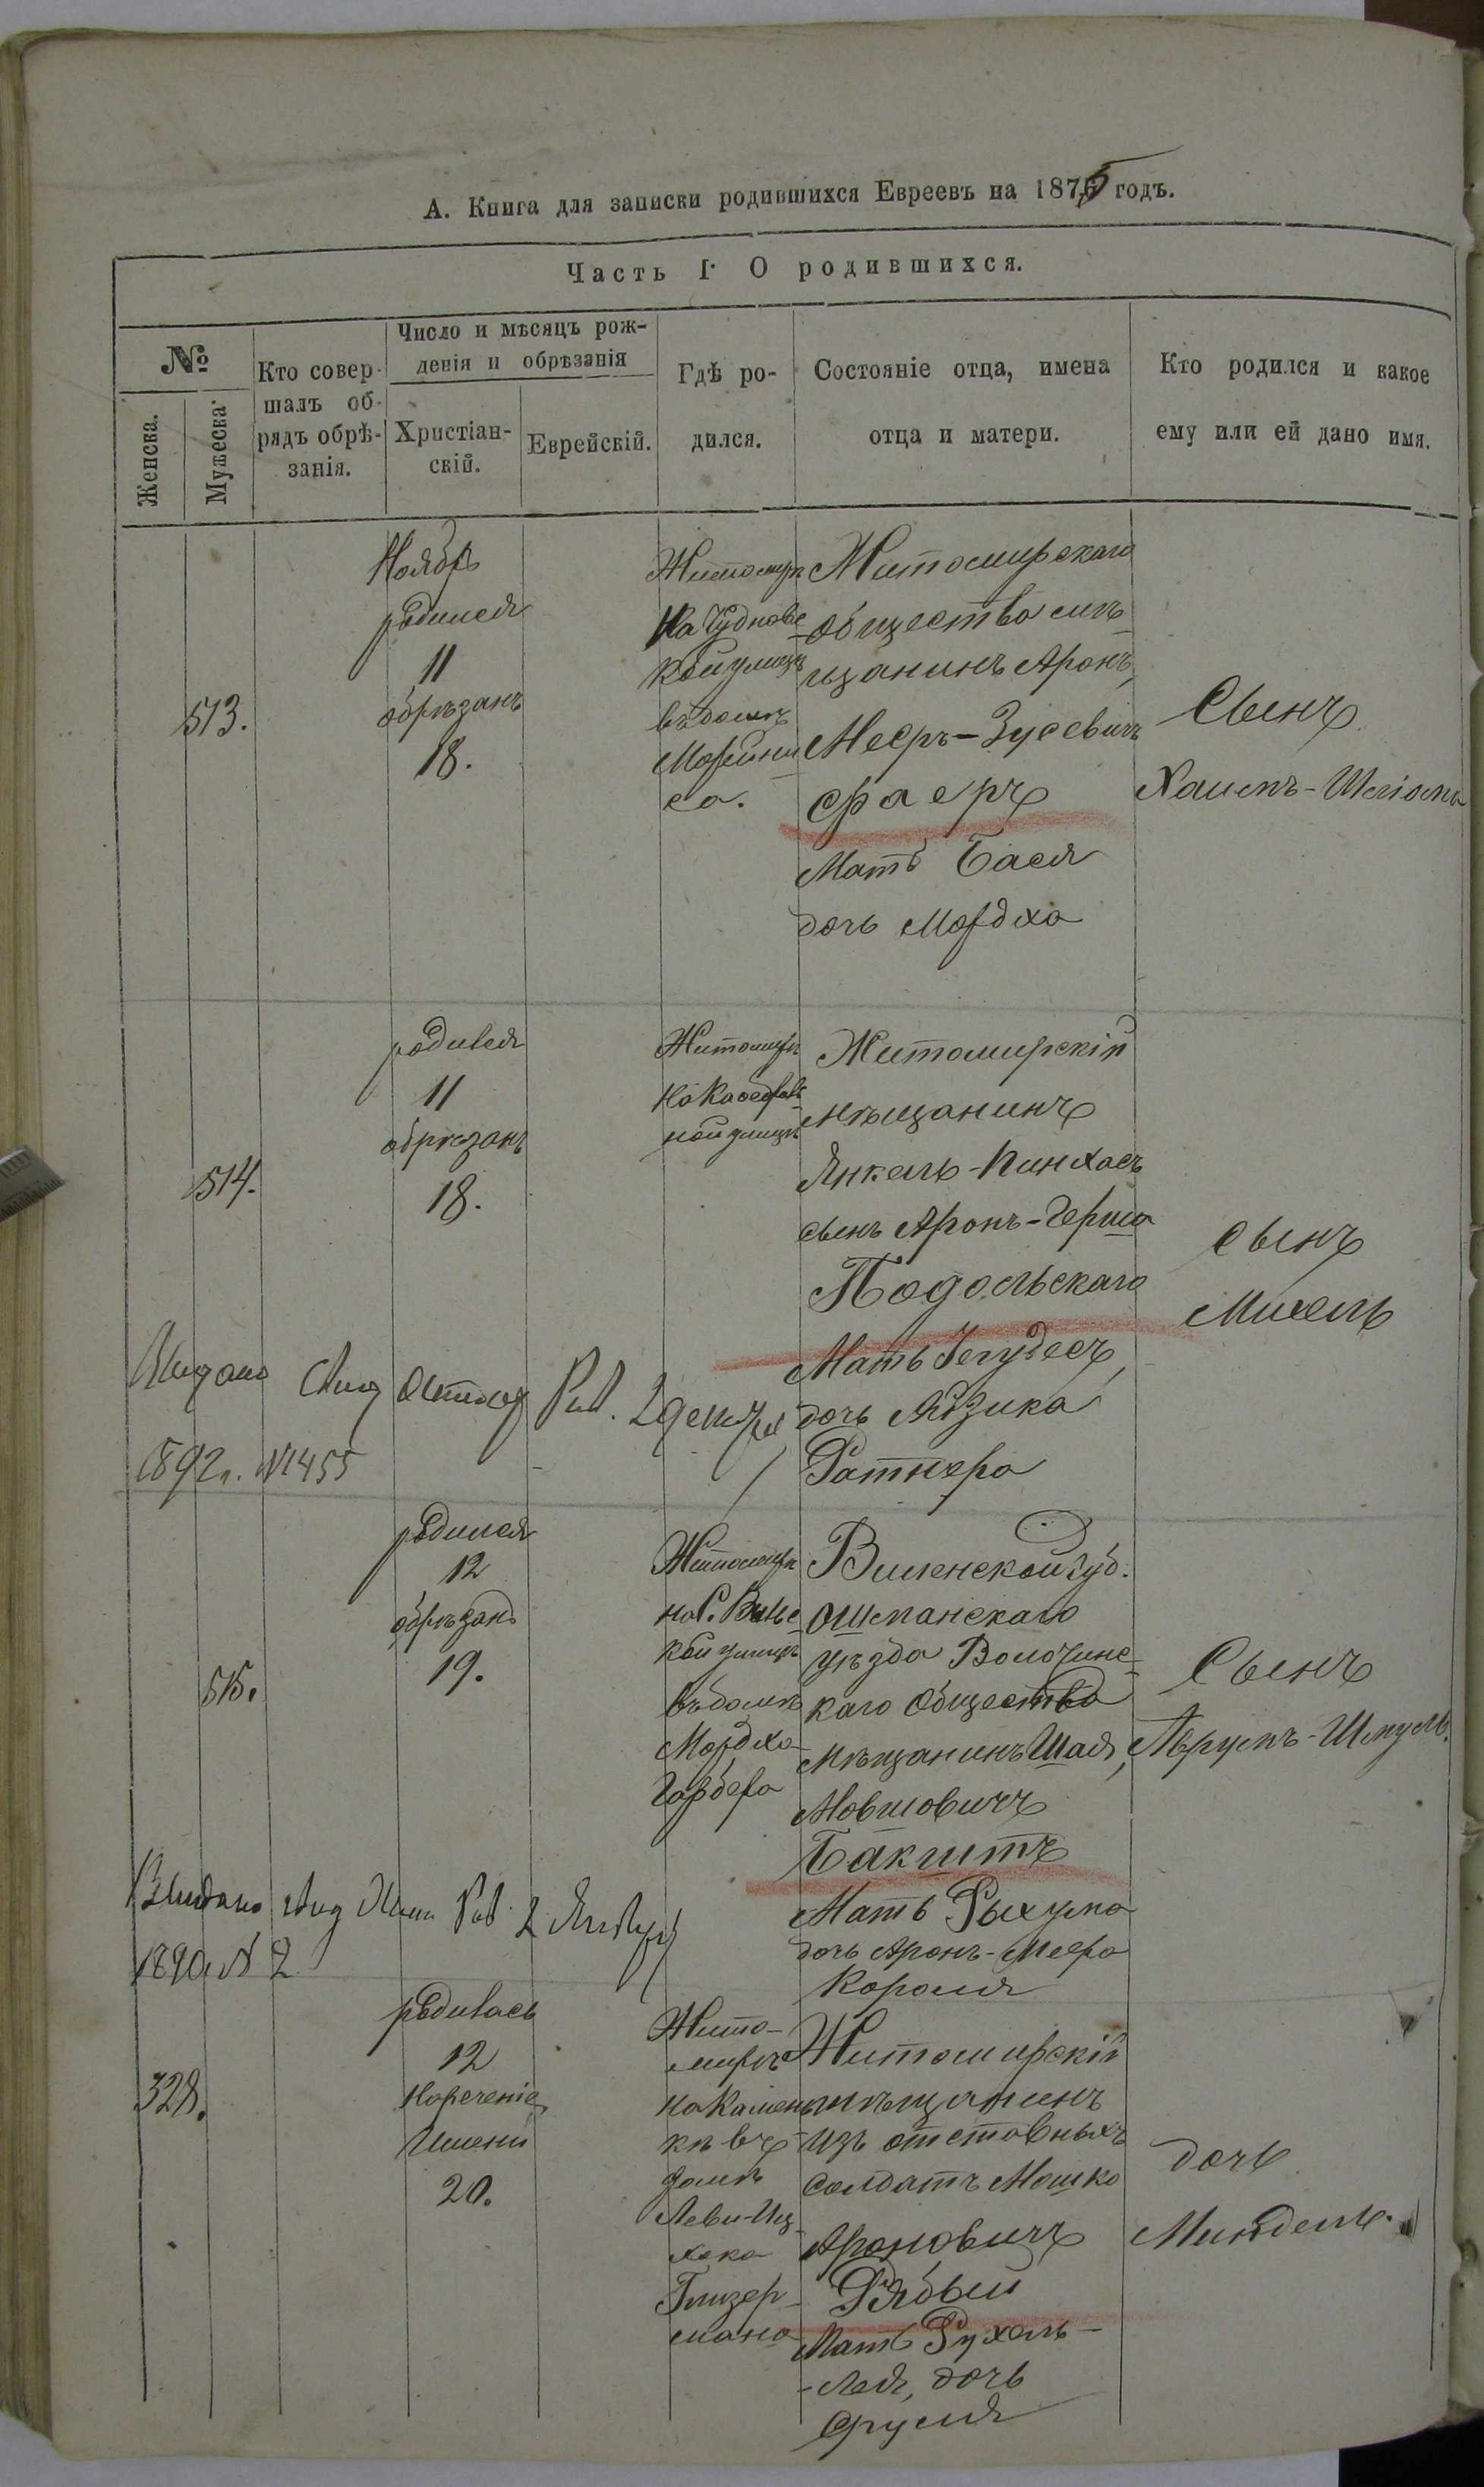 А. Книга для записки родившихся Евреевъ на 1875 годъ.
Часть I. О родившихся.
№
Женска.
Мужеска
Кто совер-
шалъ об-
рядъ обрѣ-
занія.
Число и мѣсяцъ рож-
денія и обрѣзанія
Христіан-
скій.
Еврейскій.
Гдѣ ро-
дился.
Состояніе отца, имена
отца и матери.
Кто родился и какое
ему или ей дано имя.
513.
Ноябрь
родился
11
обрѣзанъ
18.
Житомирѣ
На Чуднове
кой улицѣ
въ домѣ
са.
Житомирскаго
общества мѣ-
щанинъ Аронъ,
Меєръ-Зусевичъ
Фаеръ
Мать Бася
дочь Мордха
Сынъ
Хаимъ-Шліома
514.
родился
11
обрѣзанъ
18.
Житомирѣ
на Кафедраль
ной улицѣ
Житомирскій
мѣщанинъ
Янкель-Пинхасъ
сынъ Аронъ-Герша
Подольскаго
Мать Іегудесъ,
дочь Айзика
Ратнера
Сынъ
Михель
Выдано
1892г. №1455
515.
родился
12
обрѣзанъ
19.
Житомирѣ
на С. Вильс
кой улицѣ
въ домѣ
Мордха
Гарбера
Виленской губ.
Ошмянскаго
уѣзда Воложинс-
каго общества
мѣщанинъ Шая,
Мовшовичъ
Бакштъ
Мать Рыхума
дочь Аронъ-Меера
Короля
Сынъ
Аврумъ-Шмуль.
Выдано
1890 № 2
328.
родилась
12
Нареченіе
Имени
20.
Жито-
мирѣ
на Камен
кѣ въ
домѣ
Леви-Иц-
хока
Глизер-
мана
Житомирскій
мѣщанинъ
изъ отставныхъ
солдатъ Мошко
Ароновичъ
Рябый
Мать Рухель-
-Лея, дочь
Сруля
дочь
Миндель.